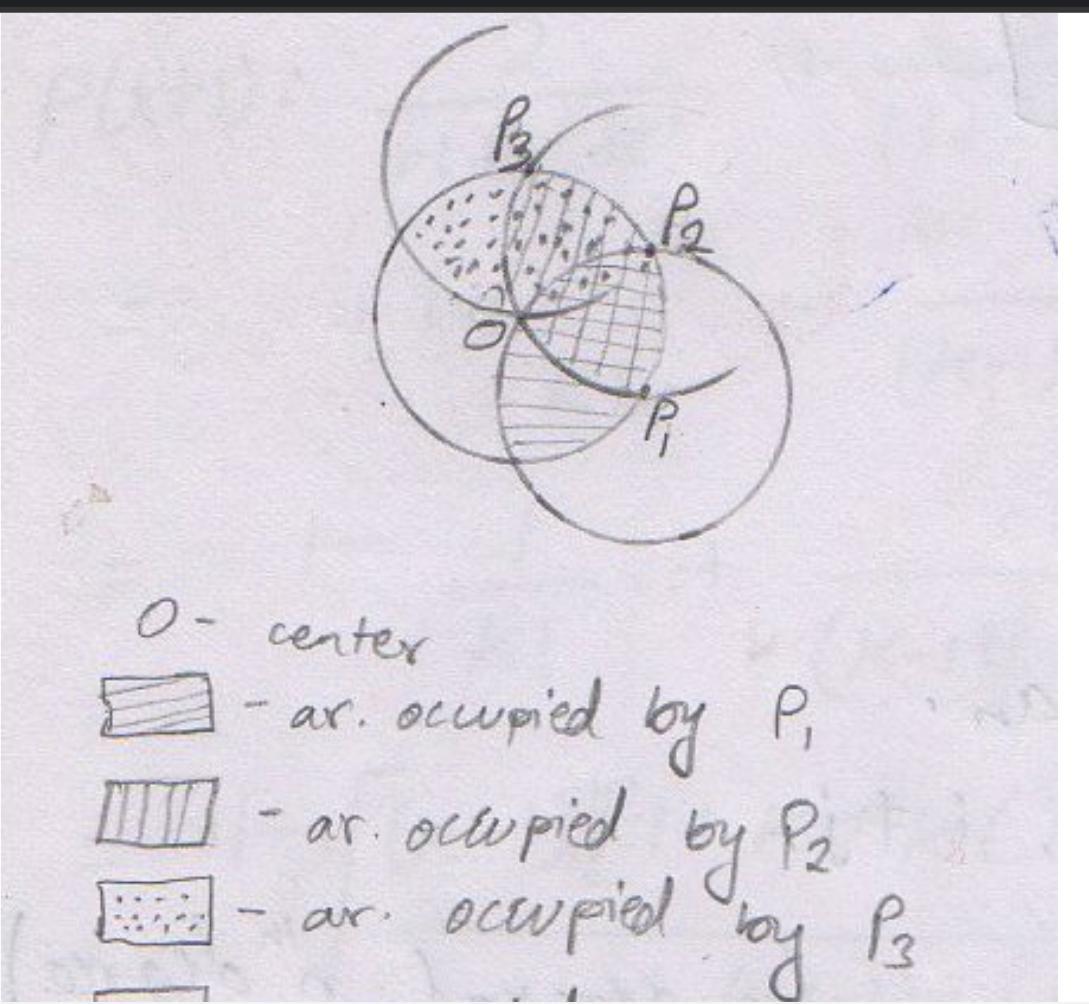 P3
P2
O
P1
O - center
- ar. occupied by P1
- ar. occupied by P2
- ar. occupied by P3